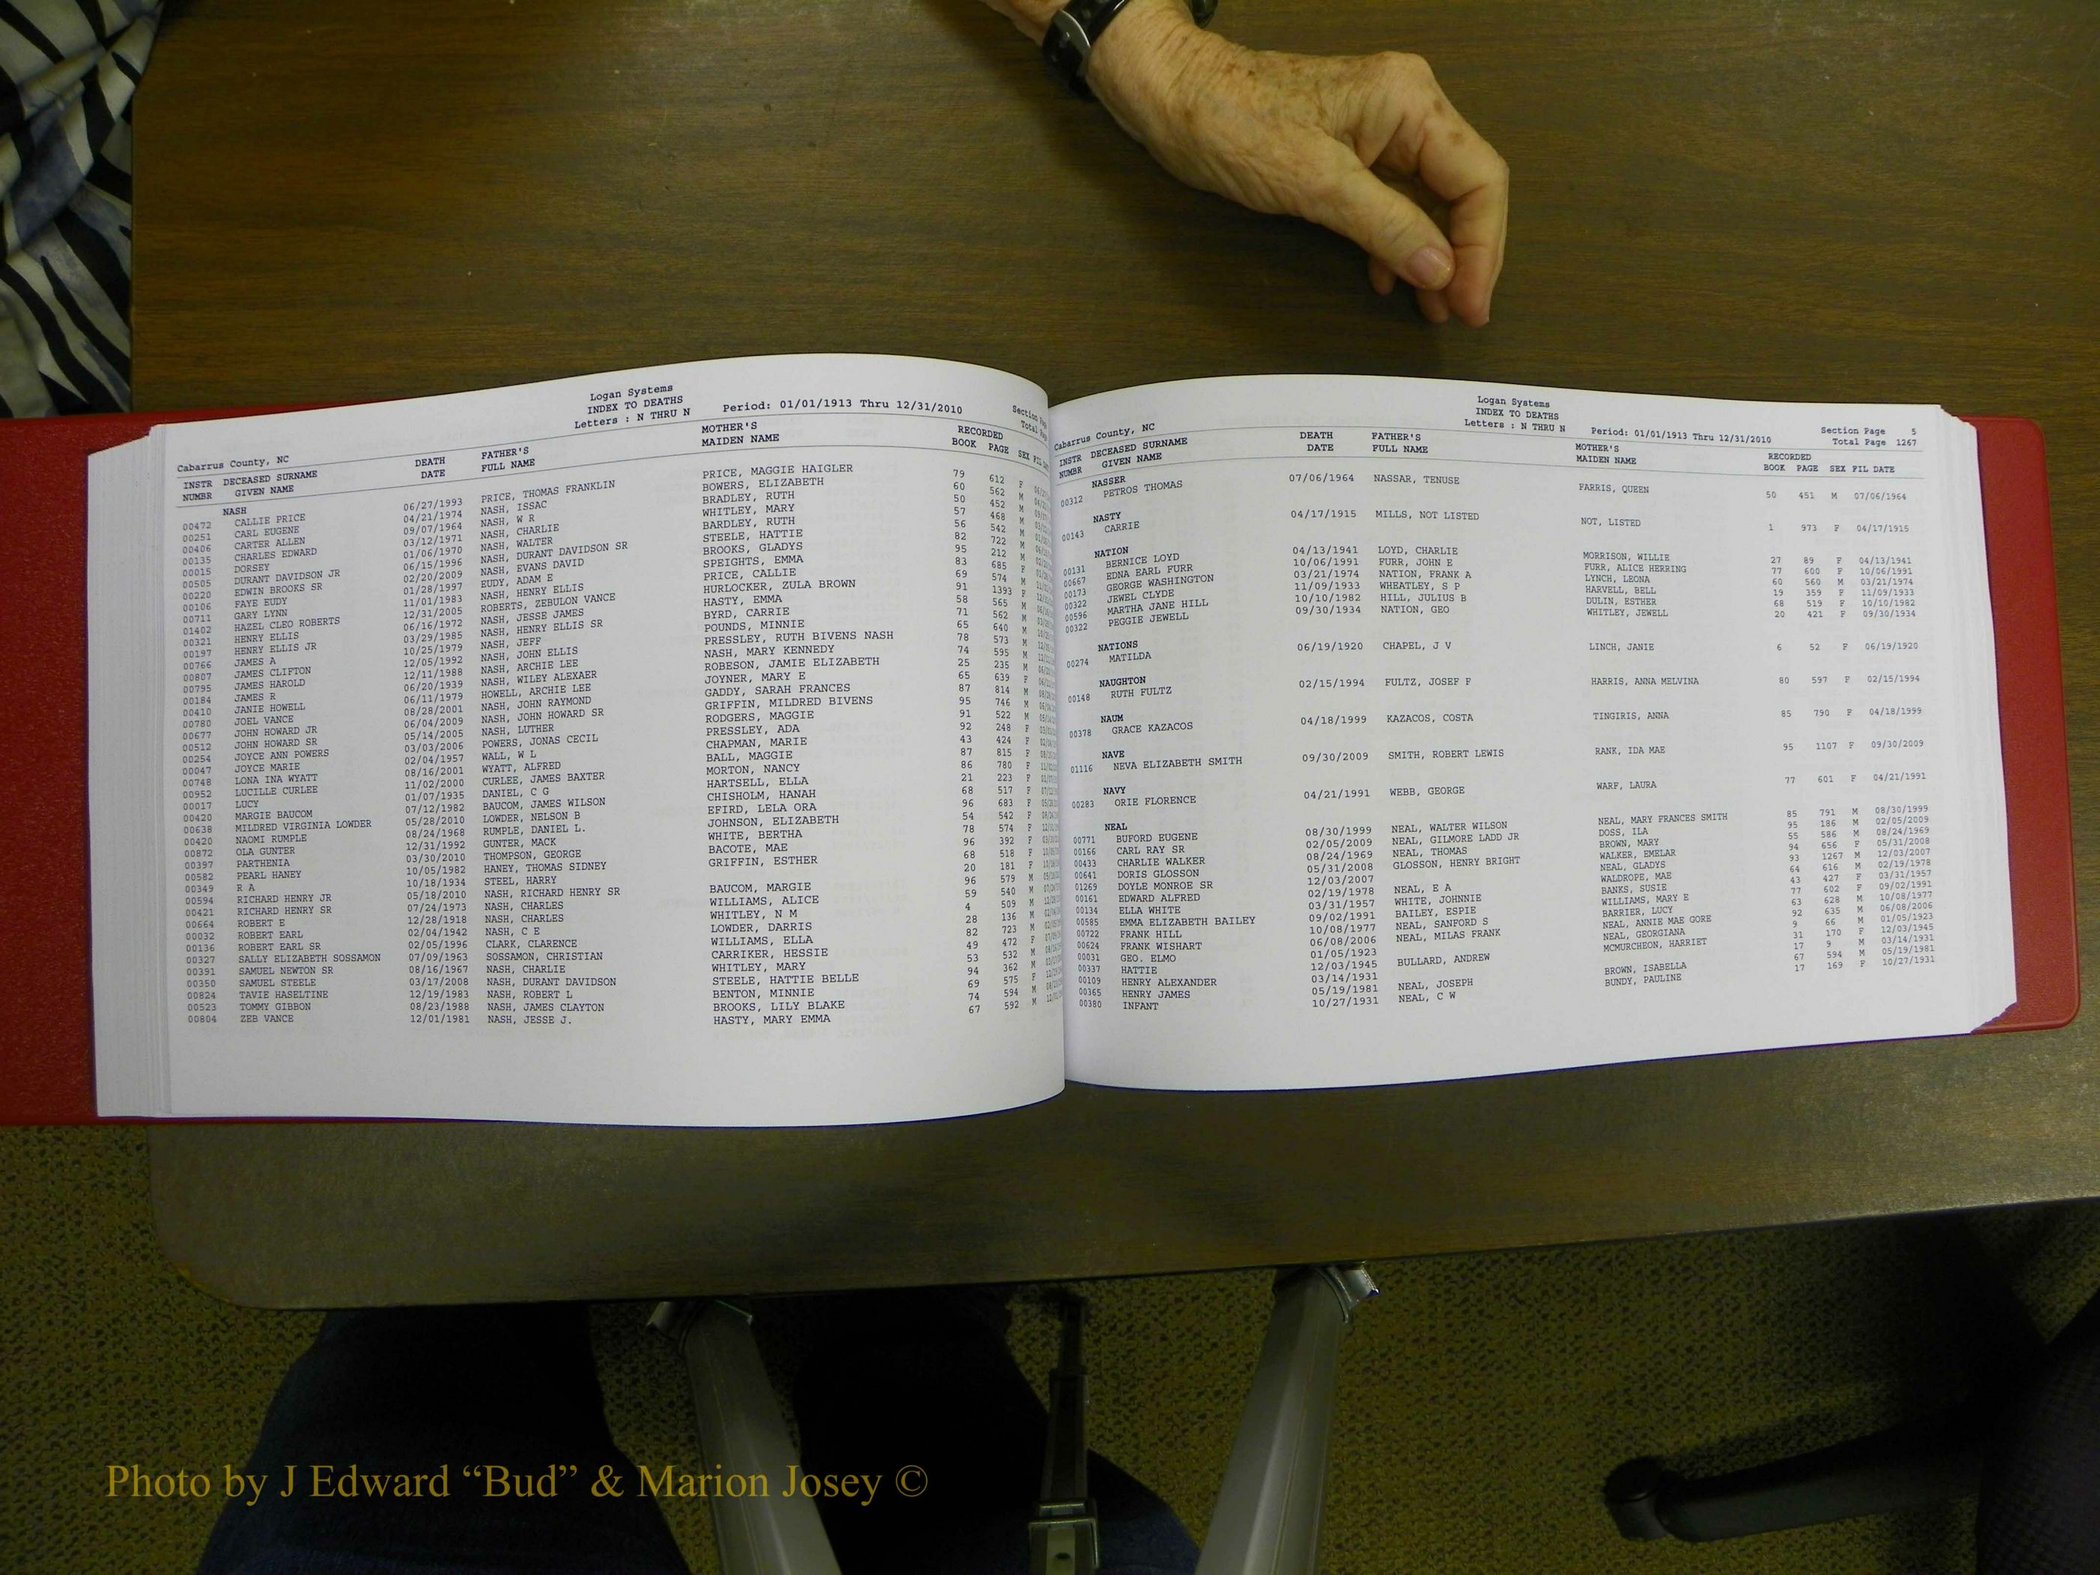 Logan Systems
INDEX TO DEATHS
Letters : N THRU N Period: 01/01/1913 Thru 12/31/2010
Cabarrus County, NC
INSTR DECEASED SURNAME DEATH FATHER'S MOTHER'S RECORDED
NUMBR GIVEN NAME DATE FULL NAME MAIDEN NAME BOOK PAGE SEX
NASH
00472 CALLIE PRICE 06/27/1993 PRICE, THOMAS FRANKLIN PRICE, MAGGIE HAIGLER 79 612 F
00251 CARL EUGENE 04/21/1974 NASH, ISSAC BOWERS, ELIZABETH 60 562 M
00406 CARTER ALLEN 09/07/1964 NASH, W R BRADLEY, RUTH 50 452 M
00135 CHARLES EDWARD 03/12/1971 NASH, CHARLIE WHITLEY, MARY 57 468 M
00015 DORSEY 01/06/1970 NASH, WALTER BARDLEY, RUTH 56 542 M
00505 DURANT DAVIDSON JR 06/15/1996 NASH, DURANT DAVIDSON SR STEELE, HATTIE 82 722 M
00220 EDWIN BROOKS SR 02/20/2009 NASH, EVANS DAVID BROOKS, GLADYS 95 212 M
00106 FAYE EUDY 01/28/1997 EUDY, ADAM E SPEIGHTS, EMMA 83 685 F
00711 GARY LYNN 11/01/1983 NASH, HENRY ELLIS PRICE, CALLIE 69 574 M
01402 HAZEL CLEO ROBERTS 12/31/2005 ROBERTS, ZEBULON VANCE HURLOCKER, ZULA BROWN 91 1393 F
00321 HENRY ELLIS 06/16/1972 NASH, JESSE JAMES HASTY, EMMA 58 565 M
00197 HENRY ELLIS JR 03/29/1985 NASH, HENRY ELLIS SR BYRD, CARRIE 71 562 M
00766 JAMES A 10/25/1979 NASH, JEFF POUNDS, MINNIE 65 640 M
00807 JAMES CLIFTON 12/05/1992 NASH, JOHN ELLIS PRESSLEY, RUTH BIVENS NASH 78 573 M
00795 JAMES HAROLD 12/11/1988 NASH, ARCHIE LEE NASH, MARY KENNEDY 74 595 M
00184 JAMES R 06/20/1939 NASH, WILEY ALEXAER ROBESON, JAMIE ELIZABETH 25 235 M
00410 JANIE HOWELL 06/11/1979 HOWELL, ARCHIE LEE JOYNER, MARY E 65 639 F
00780 JOEL VANCE 08/28/2001 NASH, JOHN RAYMOND GADDY, SARAH FRANCES 87 814 M
00677 JOHN HOWARD JR 06/04/2009 NASH, JOHN HOWARD SR GRIFFIN, MILDRED BIVENS 95 746 M
00512 JOHN HOWARD SR 05/14/2005 NASH, LUTHER RODGERS, MAGGIE 91 522 M
00254 JOYCE ANN POWERS 03/03/2006 POWERS, JONAS CECIL PRESSLEY, ADA 92 248 F
00047 JOYCE MARIE 02/04/1957 WALL, W L CHAPMAN, MARIE 43 424 F
00748 LONA INA WYATT 08/16/2001 WYATT, ALFRED BALL, MAGGIE 87 815 F
00952 LUCILLE CURLEE 11/02/2000 CURLEE, JAMES BAXTER MORTON, NANCY 86 780 F
00017 LUCY 01/07/1935 DANIEL, C G HARTSELL, ELLA 21 223 F
00420 MARGIE BAUCOM 07/12/1982 BAUCOM, JAMES WILSON CHISHOLM, HANAH 68 517 F
00638 MILDRED VIRGINIA LOWDER 05/28/2010 LOWDER, NELSON B EFIRD, LELA ORA 96 683 F
00420 NAOMI RUMPLE 08/24/1968 RUMPLE, DANIEL L. JOHNSON, ELIZABETH 54 542 F
00872 OLA GUNTER 12/31/1992 GUNTER, MACK WHITE, BERTHA 78 574 F
00397 PARTHENIA 03/30/2010 THOMPSON, GEORGE BACOTE, MAE 96 392 F
00582 PEARL HANEY 10/05/1982 HANEY, THOMAS SIDNEY GRIFFIN, ESTHER 68 518 F
00349 R A 10/18/1934 STEEL, HARRY 20 181 F
00594 RICHARD HENRY JR 05/18/2010 NASH, RICHARD HENRY SR BAUCOM, MARGIE 96 579 M
00421 RICHARD HENRY SR 07/24/1973 NASH, CHARLES WILLIAMS, ALICE 59 540 M
00664 ROBERT E 12/28/1918 NASH, CHARLES WHITLEY, N M 4 509 M
00032 ROBERT EARL 02/04/1942 NASH, C E LOWDER, DARRIS 28 136 M
00136 ROBERT EARL SR 02/05/1996 CLARK, CLARENCE WILLIAMS, ELLA 82 723 M
00327 SALLY ELIZABETH SOSSAMON 07/09/1963 SOSSAMON, CHRISTIAN CARRIKER, HESSIE 49 472 F
00391 SAMUEL NEWTON SR 08/16/1967 NASH, CHARLIE WHITLEY, MARY 53 532 M
00350 SAMUEL STEELE 03/17/2008 NASH, DURANT DAVIDSON STEELE, HATTIE BELLE 94 362 M
00824 TAVIE HASELTINE 12/19/1983 NASH, ROBERT L BENTON, MINNIE 69 575 F
00523 TOMMY GIBBON 08/23/1988 NASH, JAMES CLAYTON BROOKS, LILY BLAKE 74 594 M
00804 ZEB VANCE 12/01/1981 NASH, JESSE J. HASTY, MARY EMMA 67 592 M
Logan Systems
INDEX TO DEATHS
Letters : N THRU N Period: 01/01/1913 Thru 12/31/2010
Section Page 5
Total Page 1267
Cabarrus County, NC
INSTR DECEASED SURNAME DEATH FATHER'S MOTHER'S RECORDED
NUMBR GIVEN NAME DATE FULL NAME MAIDEN NAME BOOK PAGE SEX FIL DATE
NASSER
00312 PETROS THOMAS 07/06/1964 NASSAR, TENUSE FARRIS, QUEEN 50 451 M 07/06/1964
NASTY
00143 CARRIE 04/17/1915 MILLS, NOT LISTED NOT, LISTED 1 973 F 04/17/1915
NATION
00131 BERNICE LOYD 04/13/1941 LOYD, CHARLIE MORRISON, WILLIE 27 89 F 04/13/1941
00667 EDNA EARL FURR 10/06/1991 FURR, JOHN E FURR, ALICE HERRING 77 600 F 10/06/1991
00173 GEORGE WASHINGTON 03/21/1974 NATION, FRANK A LYNCH, LEONA 60 560 M 03/21/1974
00322 JEWEL CLYDE 11/09/1933 WHEATLEY, S P HARVELL, BELL 19 359 F 11/09/1933
00596 MARTHA JANE HILL 10/10/1982 HILL, JULIUS B DULIN, ESTHER 68 519 F 10/10/1982
00322 PEGGIE JEWELL 09/30/1934 NATION, GEO WHITLEY, JEWELL 20 421 F 09/30/1934
NATIONS
00274 MATILDA 06/19/1920 CHAPEL, J V LINCH, JANIE 6 52 F 06/19/1920
NAUGHTON
00148 RUTH FULTZ 02/15/1994 FULTZ, JOSEF F HARRIS, ANNA MELVINA 80 597 F 02/15/1994
NAUM
00378 GRACE KAZACOS 04/18/1999 KAZACOS, COSTA TINGIRIS, ANNA 85 790 F 04/18/1999
NAVE
01116 NEVA ELIZABETH SMITH 09/30/2009 SMITH, ROBERT LEWIS RANK, IDA MAE 95 1107 F 09/30/2009
NAVY
00283 ORIE FLORENCE 04/21/1991 WEBB, GEORGE WARF, LAURA 77 601 F 04/21/1991
NEAL
00771 BUFORD EUGENE 08/30/1999 NEAL, WALTER WILSON NEAL, MARY FRANCES SMITH 85 791 M 08/30/1999
00166 CARL RAY SR 02/05/2009 NEAL, GILMORE LADD JR DOSS, ILA 95 186 M 02/05/2009
00433 CHARLIE WALKER 08/24/1969 NEAL, THOMAS BROWN, MARY 55 586 M 08/24/1969
00641 DORIS GLOSSON 05/31/2008 GLOSSON, HENRY BRIGHT WALKER, EMELAR 94 656 F 05/31/2008
01269 DOYLE MONROE SR 12/03/2007 NEAL, GLADYS 93 1267 M 12/03/2007
00161 EDWARD ALFRED 02/19/1978 NEAL, E A WALDROPE, MAE 64 616 M 02/19/1978
00134 ELLA WHITE 03/31/1957 WHITE, JOHNNIE BANKS, SUSIE 43 427 F 03/31/1957
00585 EMMA ELIZABETH BAILEY 09/02/1991 BAILEY, ESPIE WILLIAMS, MARY E 77 602 F 09/02/1991
00722 FRANK HILL 10/08/1977 NEAL, SANFORD S BARRIER, LUCY 63 628 M 10/08/1977
00624 FRANK WISHART 06/08/2006 NEAL, MILAS FRANK NEAL, ANNIE MAE GORE 92 635 M 06/08/2006
00031 GEO. ELMO 01/05/1923 NEAL, GEORGIANA 9 66 M 01/05/1923
00337 HATTIE 12/03/1945 BULLARD, ANDREW MCMURCHEON, HARRIET 31 170 F 12/03/1945
00109 HENRY ALEXANDER 03/14/1931 17 9 M 03/14/1931
00365 HENRY JAMES 05/19/1981 NEAL, JOSEPH BROWN, ISABELLA 67 594 M 05/19/1981
00380 INFANT 10/27/1931 NEAL, C W BUNDY, PAULINE 17 169 F 10/27/1931
Photo by J Edward “Bud” & Marion Josey ©